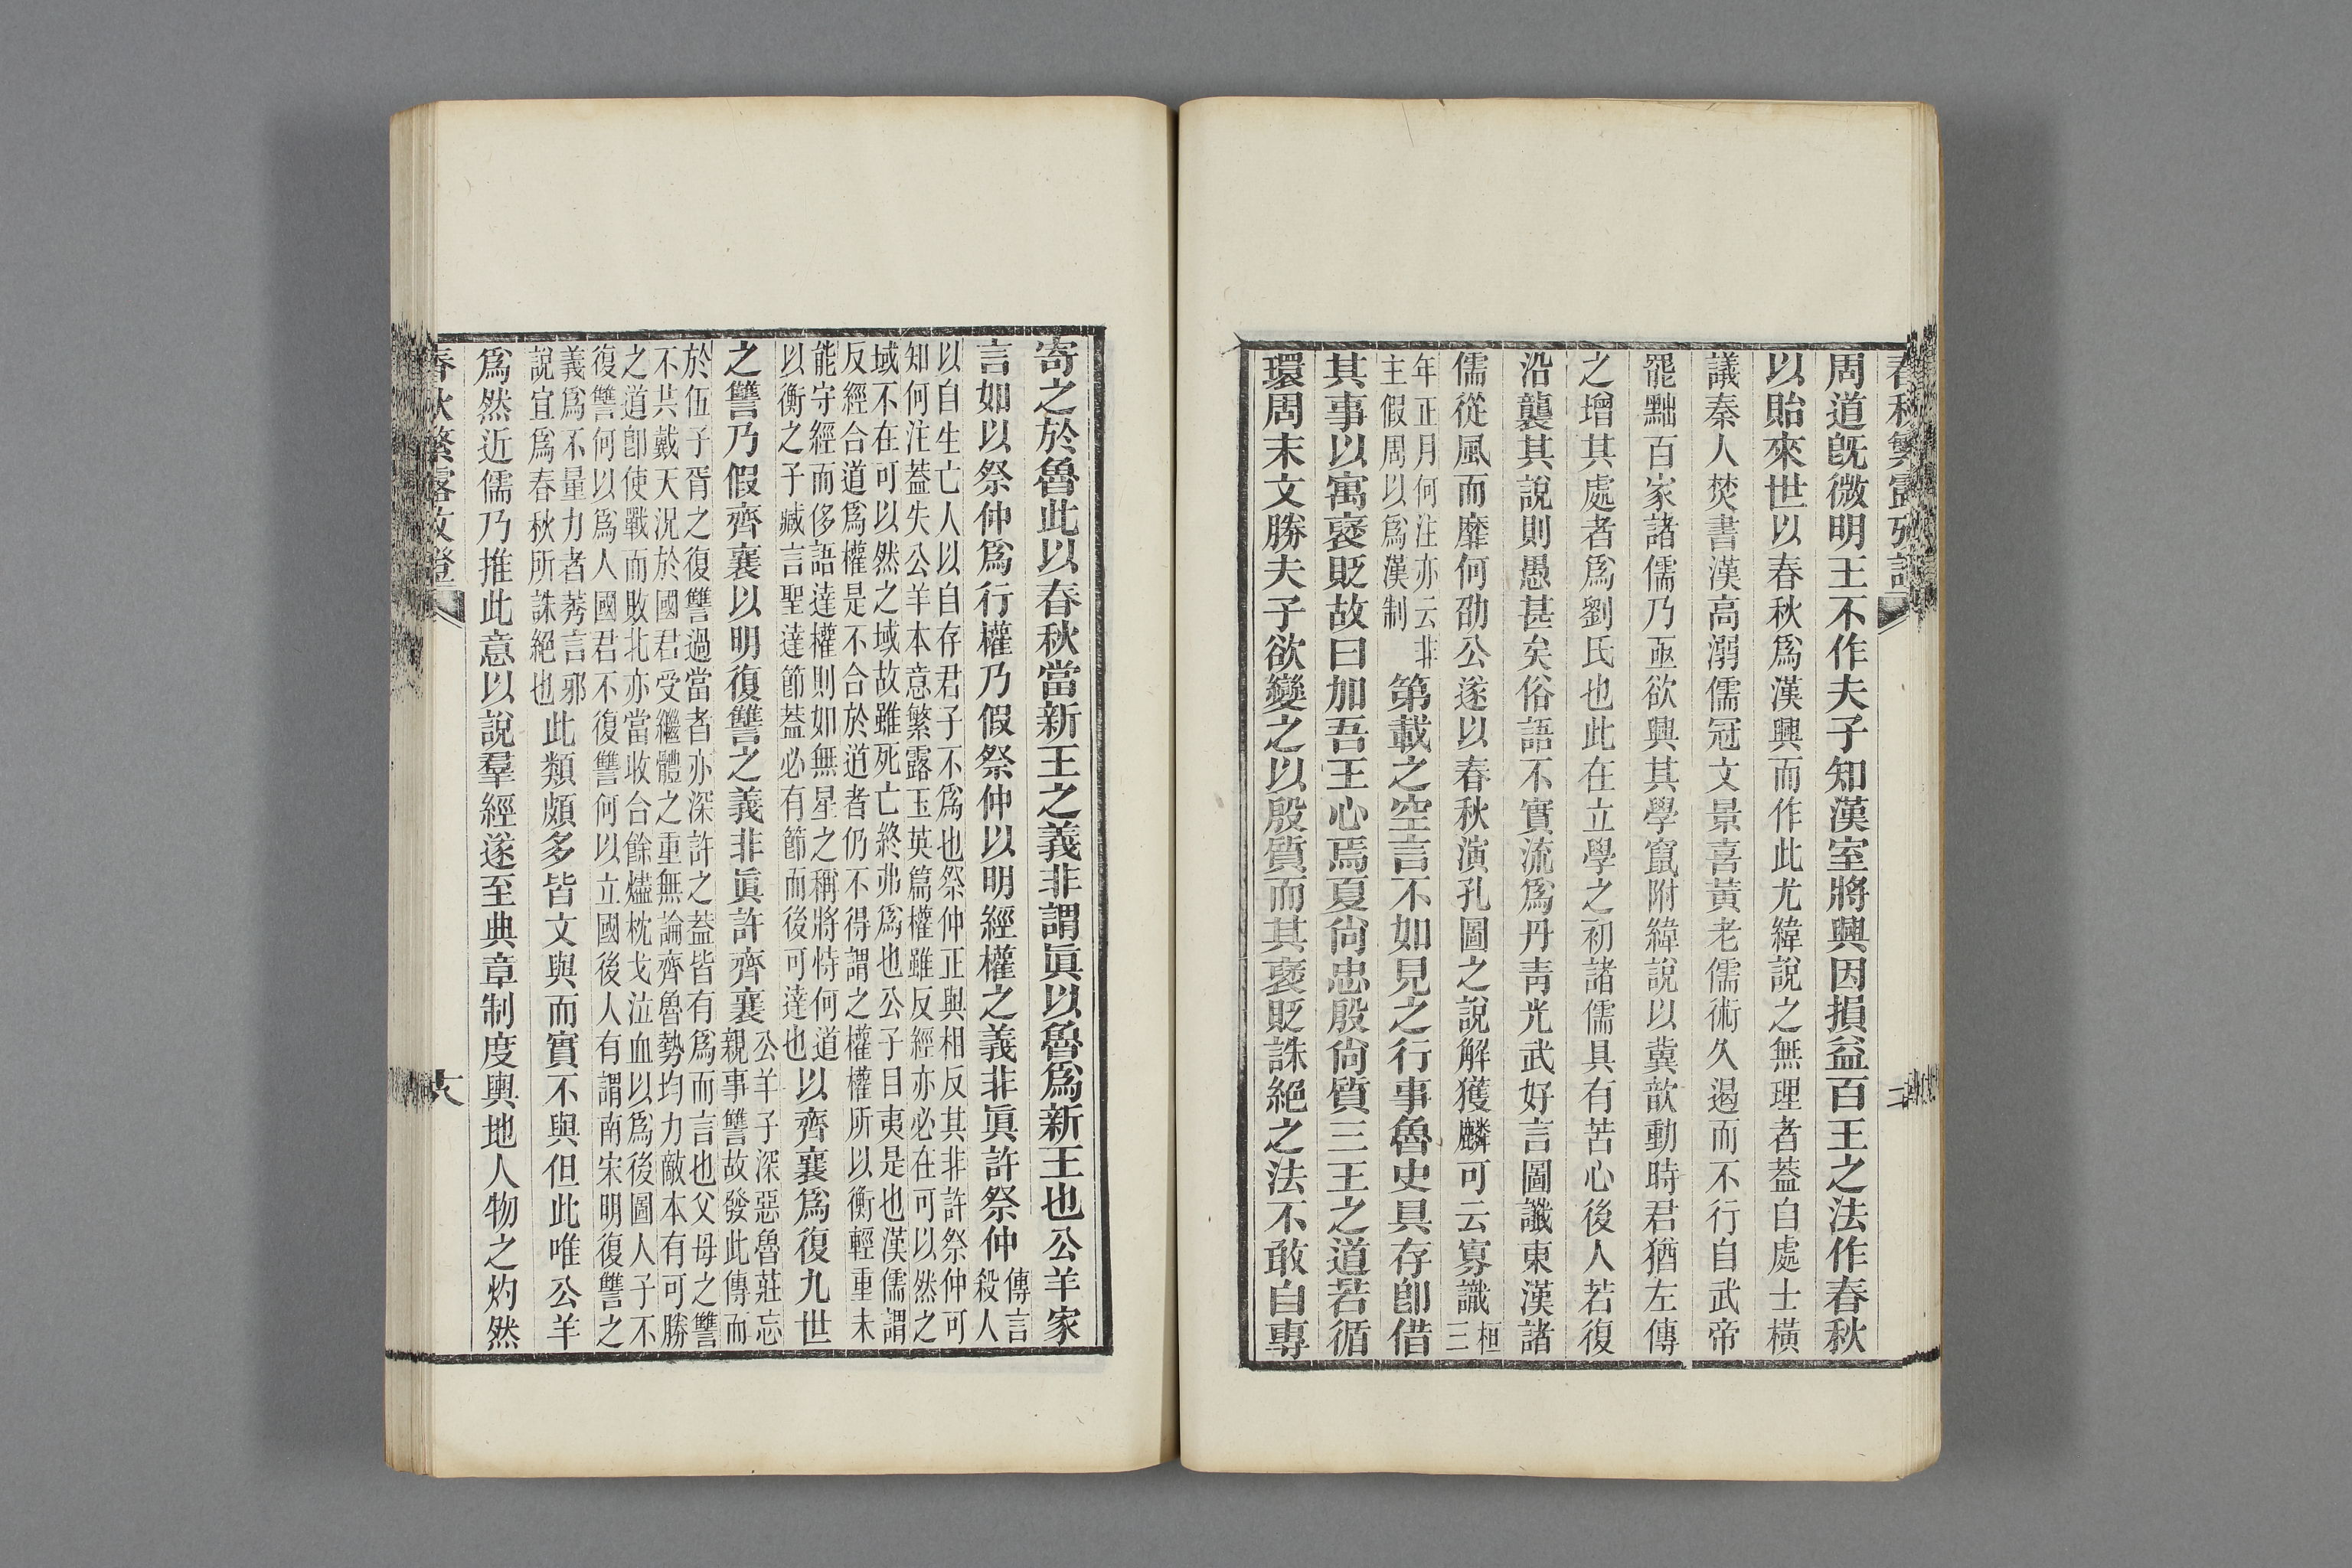 周道旣微明王不作夫子知漢室將興因損益百王之法作春秋
以貽來世以春秋爲漢興而作此尤緯說之無理者葢自處士橫
議秦人焚書漢高溺儒冠文景喜黃老儒術久遏而不行自武帝
罷黜百家諸儒乃亟欲興其學竄附緯說以冀歆動時君猶左傳
之增其處者爲劉氏也此在立學之初諸儒具有苦心後人若復
沿襲其說則愚甚矣俗語不實流爲丹靑光武好言圖讖東漢諸
儒從風而靡何劭公遂以春秋演孔圖之說解獲麟可云寡識桓三
年正月何注亦云非
主假周以爲漢制
第載之空言不如見之行事魯史具存卽借
其事以寓襃貶故曰加吾王心焉夏尙忠殷尙質三王之道若循
環周末文勝夫子欲變之以殷質而其襃貶誅絕之法不敢自專
寄之於魯此以春秋當新王之義非謂眞以魯爲新王也公羊家
言如以祭仲爲行權乃假祭仲以明經權之義非眞許祭仲
傳言
殺人
以自生亡人以自存君子不爲也祭仲正與相反其非許祭仲可
知何注葢失公羊本意繁露玉英篇權雖反經亦必在可以然之
域不在可以然之域故雖死亡終弗爲也公子目夷是也漢儒謂
反經合道爲權是不合於道者仍不得謂之權權所以衡輕重未
能守經而侈語達權則如無星之稱將恃何道
以衡之子臧言聖達節葢必有節而後可達也
以齊襄爲復九世
之讐乃假齊襄以明復讐之義非眞許齊襄
公羊子深惡魯莊忘
親事讐故發此傳而
於伍子胥之復讐過當者亦深許之葢皆有爲而言也父母之讐
不共戴天況於國君受繼體之重無論齊魯勢均力敵本有可勝
之道卽使戰而敗北亦當收合餘燼枕戈泣血以爲後圖人子不
復讐何以爲人國君不復讐何以立國後人有謂南宋明復讐之
義爲不量力者莠言邪
說宜爲春秋所誅絕也
此類頗多皆文與而實不與但此唯公羊
爲然近儒乃推此意以說羣經遂至典章制度輿地人物之灼然